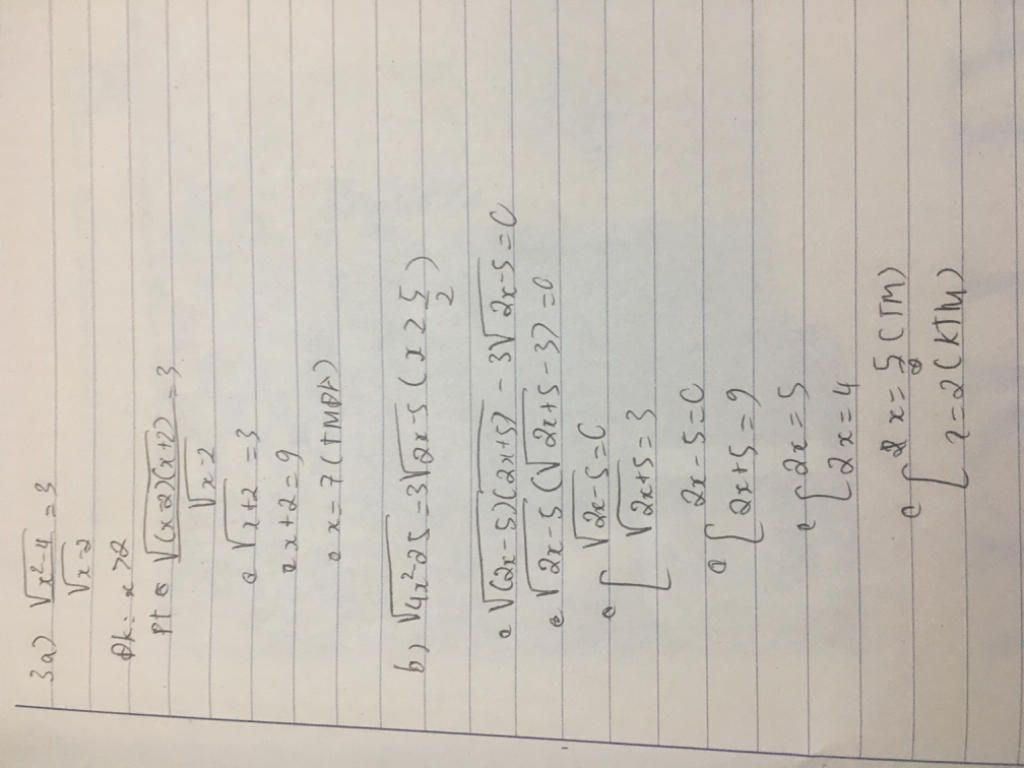 3a) √(x²-4) / √(x-2) = 3
Đk: x > 2
Pt ⇔ √((x-2)(x+2)) / √(x-2) = 3
⇔ √(x+2) = 3
⇔ x+2 = 9
⇔ x = 7 (TMĐK)
b) √(4x²-25) = 3√(2x-5) (x ≥ 5/2)
⇔ √((2x-5)(2x+5)) - 3√(2x-5) = 0
⇔ √(2x-5) (√(2x+5) - 3) = 0
⇔ [ √(2x-5) = 0
√(2x+5) = 3
⇔ [ 2x-5 = 0
2x+5 = 9
⇔ [ 2x = 5
2x = 4
⇔ [ x = 5/2 (TM)
x = 2 (KTM)